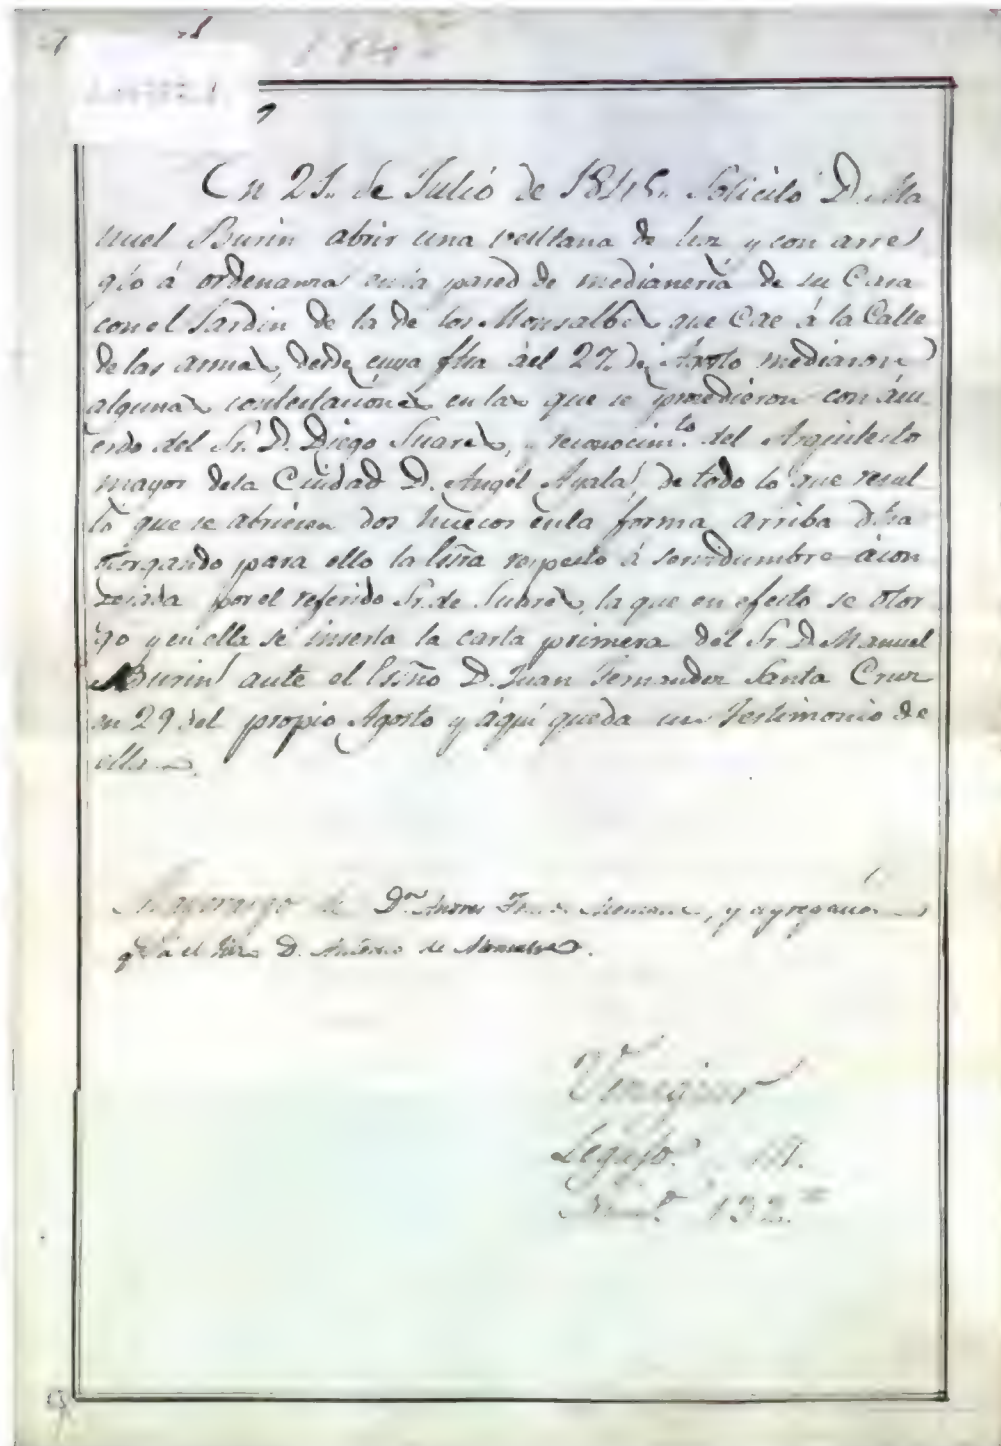 En 21,, de Julió de 184 Solicitó D. Ma
nuel Burin abrir una ventana de luz y con arre
glo á ordenanza en la pared de medianería de su Casa
con el Jardin de la de los Monsalbes que Cae á la Calle
de las armas, desde cuya fha á el 27 de Agosto mediaron
algunas contestaciónes en las que se procedieron con ácu
erdo del Sr. D. Diego Suares, y reconocim.to del Arquitecto
mayor dela Ciudad D. Angel Ayala, de todo lo que resul
tó que se abriesen dos huecos enla forma arriba dha
otorgando para ello la Essra respecto á servidumbre ácon
por el referido Sr. de Suares, la que en efecto se otor
gó y en ella se inserta la carta primera del Sr D. Manuel
Burin ante el Essño D. Juan Fernandez Santa Cruz
en 29 del propio Agosto y áqui queda un Testimonio de
ella
Mayorazgo de D.n Andres de Monsalve, y agregación
q.e á el hizo D. Antonio de Monsalve.
Legajo. 
Num.o 132.